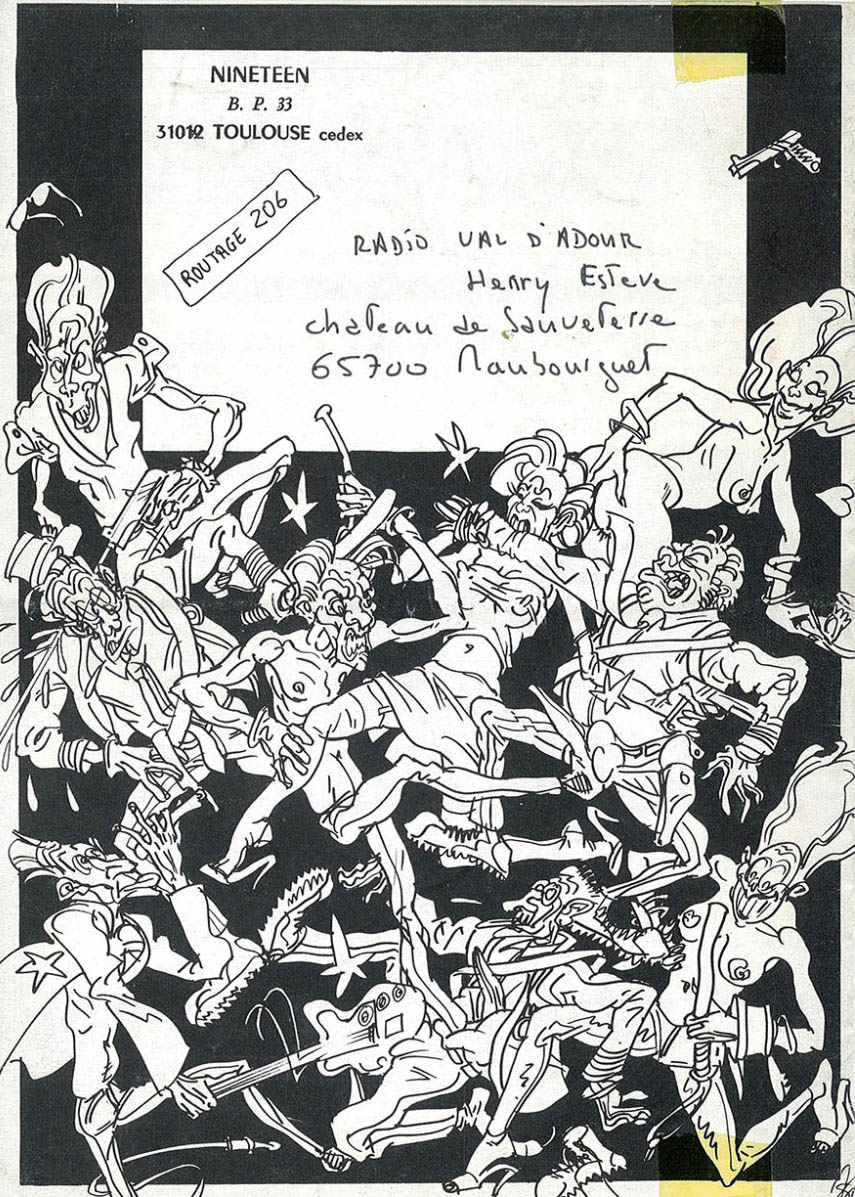 NINETEEN
B. P. 33
31012 TOULOUSE cedex
ROUTAGE 206
RADIO VAL D'ADOUR
Henry Esteve
chateau de Sauveterre
65700 Maubourguet